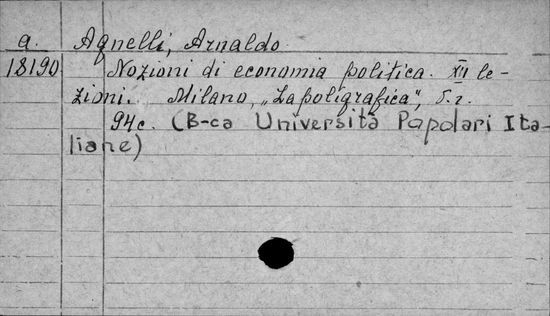 a. Agnelli, Arnaldo
18190 Nozioni di economia politica. XII le-
zioni. Milano, „La poligrafica", s.a.
94c. (B-ca Università Papolari Ita-
liane)